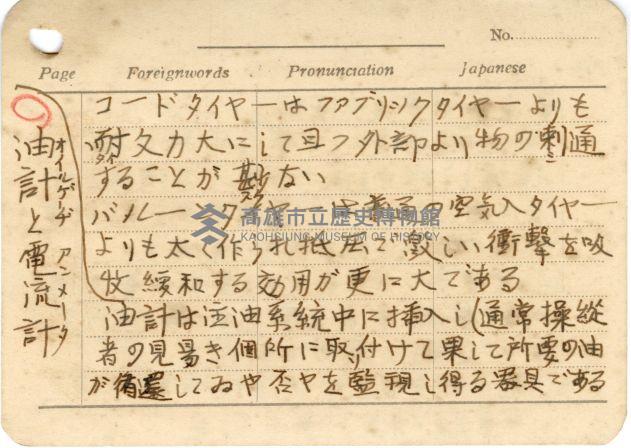 No.
Page Foreignwords Pronunciation Japanese
コードタイヤーはファブリックタイヤーよりも
耐久力大にして且つ外部より物の刺通
タイ
することが尠ない
スク
バルーンタイヤーは普通の空気入タイヤー
よりも太く作られ低圧で激しい衝撃を吸
收緩和する効用が更に大である
油計は注油系統中に挿入し(通常操縦
者の見易き個所に取付けて果して所要の油
が循還してゐや否ヤを監視し得る器具である
油計と電流計
オイルゲーヂ アンメータ
高雄市立歷史博物館
KAOHSIUNG MUSEUM OF HISTORY